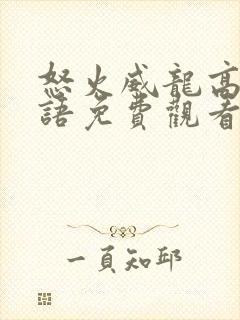 怒火威龍高
語免費觀看
一頁知邱